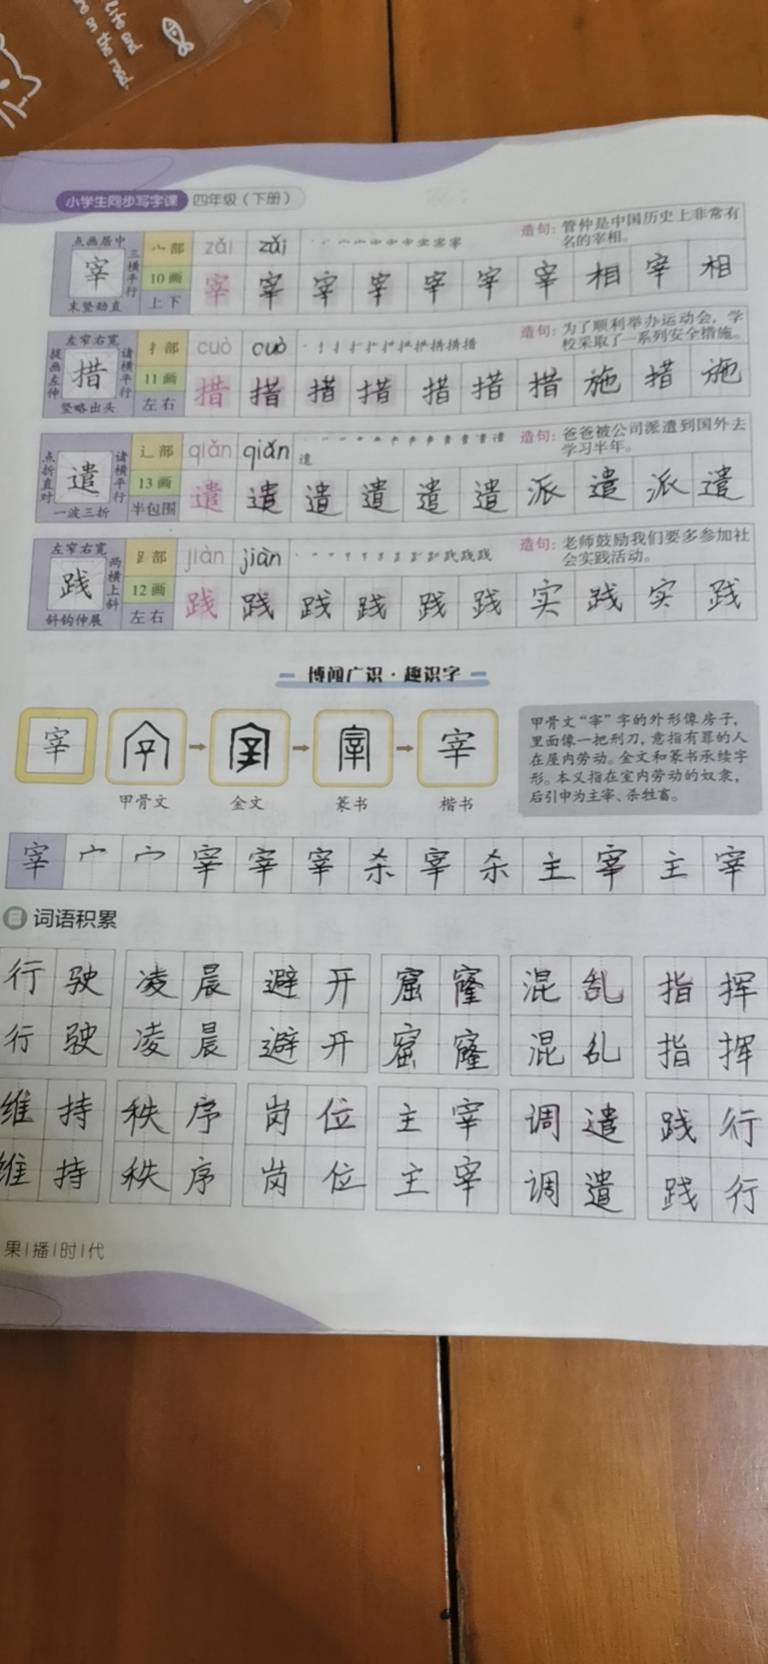 小学生同步写字课 四年级（下册）
点画居中 宀部 zǎi zǎi 造句：管仲是中国历史上非常有
名的宰相。
宰 三横平行 10画 宰 宰 宰 宰 宰 宰 宰 相 宰 相
末竖劲直 上下
左窄右宽 扌部 cuò cuò 造句：为了顺利举办运动会，学
校采取了一系列安全措施。
提画左伸 措 诸横平行 11画 措 措 措 措 措 措 措 施 措 施
竖略出头 左右
辶部 qiǎn qiǎn 造句：爸爸被公司派遣到国外去
学习半年。
点折直对 遣 诸横平行 13画 遣 遣 遣 遣 遣 遣 派 遣 派 遣
一波三折 半包围
左窄右宽 𧾷部 jiàn jiàn 造句：老师鼓励我们要多参加社
会实践活动。
践 两横上斜 12画 践 践 践 践 践 践 实 践 实 践
斜钩伸展 左右
博闻广识·趣识字
宰 宰
甲骨文 金文 篆书 楷书
甲骨文“宰”字的外形像房子，
里面像一把刑刀，意指有罪的人
在屋内劳动。金文和篆书承续字
形。本义指在室内劳动的奴隶，
后引申为主宰、杀牲畜。
宰 亠 宀 宰 宰 宰 杀 宰 杀 主 宰 主 宰
词语积累
行驶 凌晨 避开 窟窿 混乱 指挥
行驶 凌晨 避开 窟窿 混乱 指挥
维持 秩序 岗位 主宰 调遣 践行
维持 秩序 岗位 主宰 调遣 践行
果|播|时|代